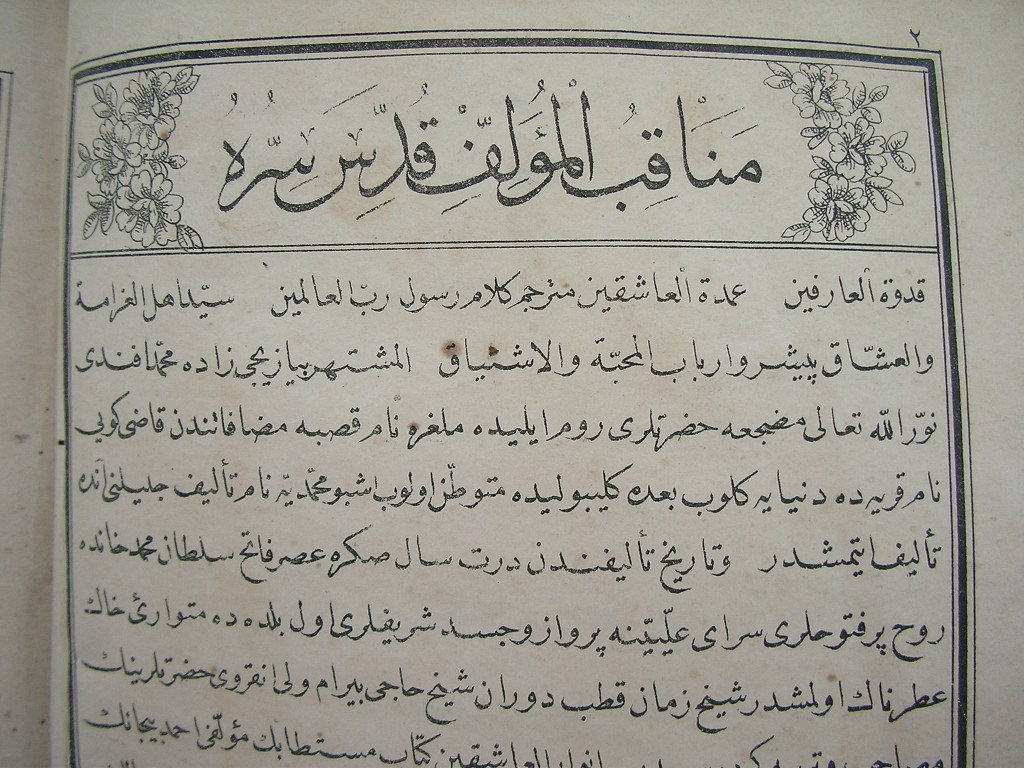 ٢
مَنَاقِبُ الْمُؤَلِّفْ قُدِّسَ سِرُّهُ
قدوة العارفين عمدة العاشقين مترجم كلام رسول ربّ العالمين سيّد اهل الغرامة
والعشّاق پيشرو ارباب المحبّة والاشتياق المشتهر بيازيجى زاده محمّد افندى
نوّر الله تعالى مضجعه حضرتلرى روم ايليده ملغره نام قصبه مضافاتندن قاضى كويى
نام قريه ده دنيايه كلوب بعده كليبوليده متوطّن اولوب اشبو محمّديّه نام تأليف جليلنى آنده
تأليف ايتمشدر وتاريخ تأليفندن درت سال صكره عصر فاتح سلطان محمد خانده
روح پرفتوحلرى سراى علّيّينه پرواز وجسد شريفلرى اول بلده ده متوارئ خاك
عطرناك اولمشدر شيخ زمان قطب دوران شيخ حاجى بيرام ولى انقروى حضرتلرينك
انوار العاشقين كتاب مستطابك مؤلّفى احمد بيجانك